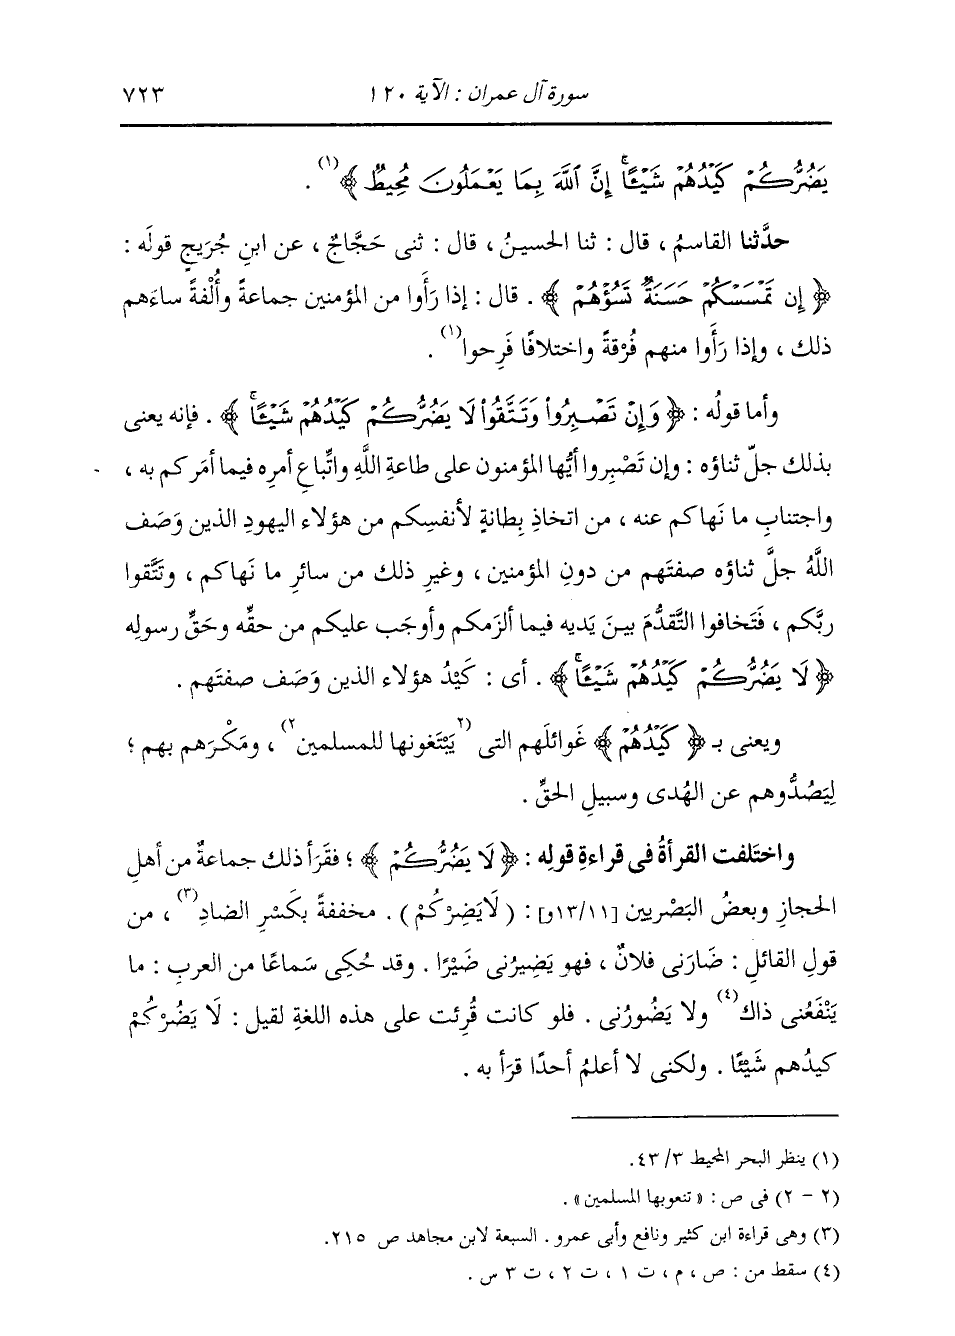 سورة آل عمران : الآية ١٢٠
٧٢٣
يَضُرُّكُمْ كَيْدُهُمْ شَيْئًا إِنَّ ٱللَّهَ بِمَا يَعْمَلُونَ مُحِيطٌ ﴾(١) .
حدَّثنا القاسمُ ، قال : ثنا الحسينُ ، قال : ثنى حَجَّاجٌ ، عن ابنِ جُرَيجٍ قولَه :
﴿ إِن تَمْسَسْكُمْ حَسَنَةٌ تَسُؤْهُمْ ﴾ . قال : إذا رَأَوا من المؤمنين جماعةً وأُلْفةً ساءَهم
ذلك ، وإذا رَأَوا منهم فُرْقةً واختلافًا فَرِحوا(١) .
وأما قولُه : ﴿ وَإِن تَصْبِرُواْ وَتَتَّقُواْ لَا يَضُرُّكُمْ كَيْدُهُمْ شَيْئًا ﴾ . فإنه يعنى
بذلك جلّ ثناؤه : وإن تَصْبِروا أيُّها المؤمنون على طاعةِ اللَّهِ واتِّباعِ أمرِه فيما أمَركم به ،
واجتنابِ ما نَهاكم عنه ، من اتخاذِ بِطانةٍ لأنفسِكم من هؤلاء اليهودِ الذين وَصَف
اللَّهُ جلَّ ثناؤه صفتَهم من دونِ المؤمنين ، وغيرِ ذلك من سائرِ ما نَهاكم ، وتَتَّقوا
ربَّكم ، فَتَخافوا التَّقدُّمَ بينَ يَديه فيما ألزَمكم وأوجَب عليكم من حقِّه وحَقِّ رسولِه
﴿ لَا يَضُرُّكُمْ كَيْدُهُمْ شَيْئًا ﴾ . أى : كَيْدُ هؤلاء الذين وَصَف صفتَهم .
ويعنى بـ ﴿ كَيْدُهُمْ ﴾ غَوائلَهم التى (٢يَبْتَغونها للمسلمين٢) ، ومَكْرَهم بهم ؛
لِيَصُدُّوهم عن الهُدى وسبيلِ الحقِّ .
واختَلفت القرأةُ فى قراءةِ قولِه : ﴿ لَا يَضُرُّكُمْ ﴾ ؛ فقَرَأ ذلك جماعةٌ من أهلِ
الحجازِ وبعضُ البَصْريين [١٣/١١و] : ( لَا يَضِرْكُمْ ) . مخففةً بكَسْرِ الضادِ(٣) ، من
قولِ القائلِ : ضَارَنى فلانٌ ، فهو يَضِيرُنى ضَيْرًا . وقد حُكِى سَماعًا من العربِ : ما
يَنْفَعُنى ذاك(٤) ولا يَضُورُنى . فلو كانت قُرِئت على هذه اللغةِ لقيل : لَا يَضُرْكُمْ
كيدُهم شَيْئًا . ولكنى لا أعلمُ أحدًا قرَأ به .
(١) ينظر البحر المحيط ٣/ ٤٣.
(٢ - ٢) فى ص : « تنعوبها المسلمين » .
(٣) وهى قراءة ابن كثير ونافع وأبى عمرو . السبعة لابن مجاهد ص ٢١٥.
(٤) سقط من : ص ، م ، ت ١ ، ت ٢ ، ت ٣ س .